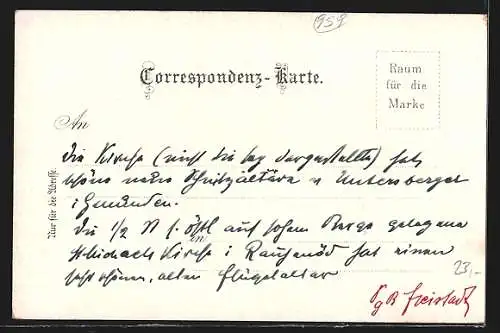 959
Correspondenz-Karte.
Raum
für die
Marke
An
Nur für die Adresse
die Kirche (nicht die hier dargestellte) hat
schöne neue Schnitzaltäre v Untersberger
i Gmunden.
Die 1/2 St östl auf hohem Berge gelegene
Michaels Kirche i Rauhenöd hat einen
sehr schönen, alten Flügelaltar
23,-
Freistadt